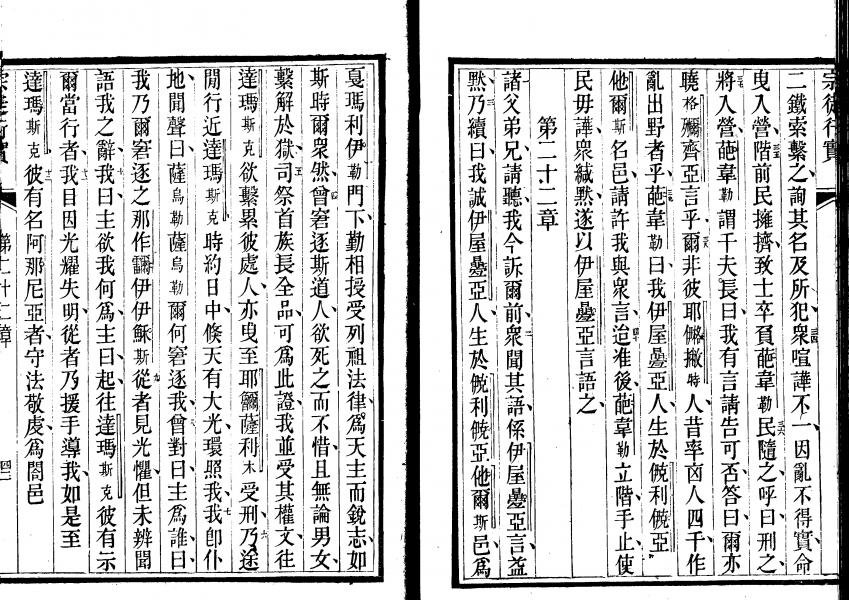 宗徒行實
二鐵索繫之詢其名及所犯衆喧譁不一因亂不得實命
曳入營階前民擁擠致士卒負葩韋勒民隨之呼曰刑之
將入營葩韋勒謂千夫長曰我有言請告可否答曰爾亦
曉格彌齊亞言乎爾非彼耶撇特人昔率卤人四千作
亂出野者乎葩韋勒曰我伊屋疊亞人生於利亞
他爾斯名邑請許我與衆言迨准後葩韋勒立階手止使
民毋譁衆緘默遂以伊屋疊亞言語之
第二十二章
諸父弟兄請聽我今訴爾前衆聞其語係伊屋疊亞言益
默乃續曰我誠伊屋疊亞人生於利亞他爾斯邑爲
戛瑪利伊勒門下勤相授受列祖法律爲天主而銳志如
斯時爾衆然曾窘逐斯道人欲死之而不惜且無論男女
繫解於獄司祭首族長全品可爲此證我並受其權文往
達瑪斯克欲繫累彼處人亦曳至耶薩利木受刑乃途
閒行近達瑪斯克時約日中倏天有大光環照我我卽仆
地聞聲曰薩烏勒薩烏勒爾何窘逐我曾對曰主爲誰曰
我乃爾窘逐之那作伊伊穌斯從者見光懼但未辨聞
語我之辭我曰主欲我何爲主曰起往達瑪斯克彼有示
爾當行者我目因光耀失明從者乃援手導我如是至
達瑪斯克彼有名阿那尼亞者守法敬虔爲閤邑
第二十二章